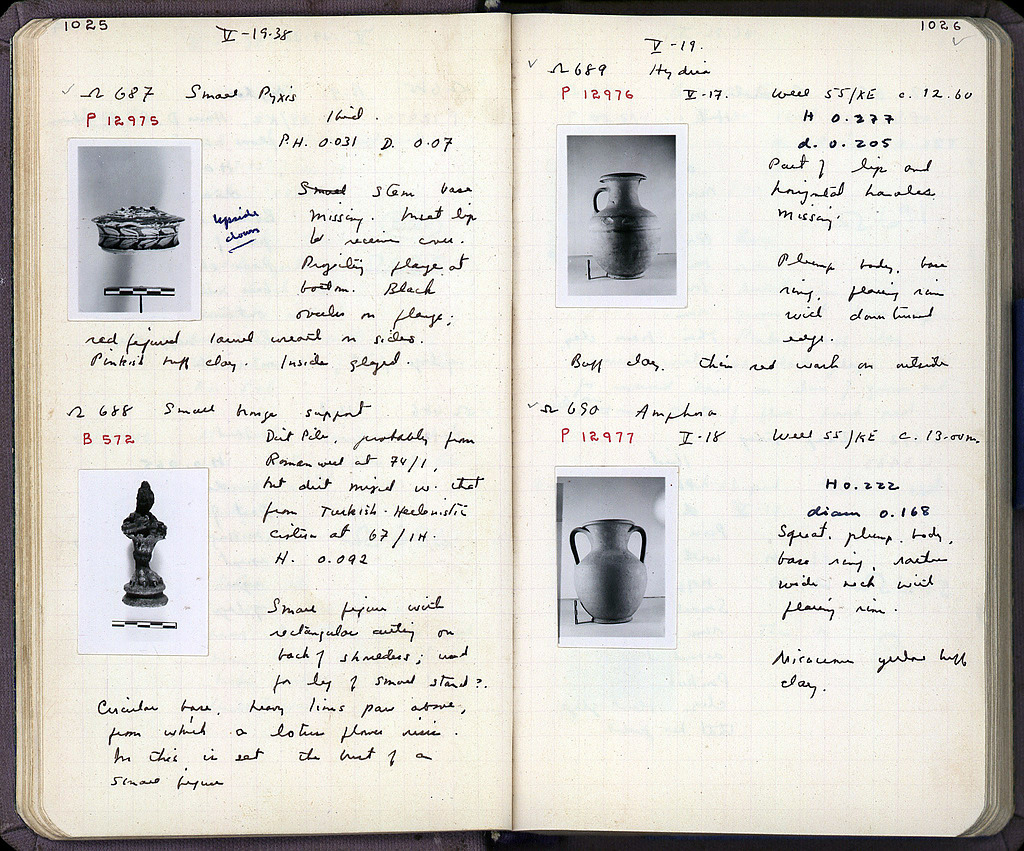 1025
V-19-38
Ω 687 Small Pyxis
P 12975
Ibid.
P.H. 0.031 D. 0.07
upside
down
Small stem base
missing. Inset lip
to receive cover.
Projecting flange at
bottom. Black
ovules on flange;
red figured laurel wreath on sides.
Pinkish buff clay. Inside glazed.
Ω 688 Small bronze support
B 572
Dirt Pile, probably from
Roman well at 74/1,
but dirt mixed w. that
from Turkish-Hellenistic
cistern at 67/IH.
H. 0.092
Small figure with
rectangular cutting on
back of shoulders; used
for leg of small stand?.
Circular base, heavy lions paw above,
from which a lotus flower rises.
In this is set the bust of a
small figure
1026
V-19.
Ω 689 Hydria
P 12976 V-17. Well 55/KE c. 12.60
H 0.277
d. 0.205
Part of lip and
horizontal handles
missing.
Plump body, base
ring, flaring rim
with down turned
edge.
Buff clay. Thin red wash on outside
Ω 690 Amphora
P 12977 V-18 Well 55/KE c. 13.00m.
H 0.222
diam 0.168
Squat, plump body,
base ring, rather
wide neck with
flaring rim.
Micaceous yellow buff
clay.